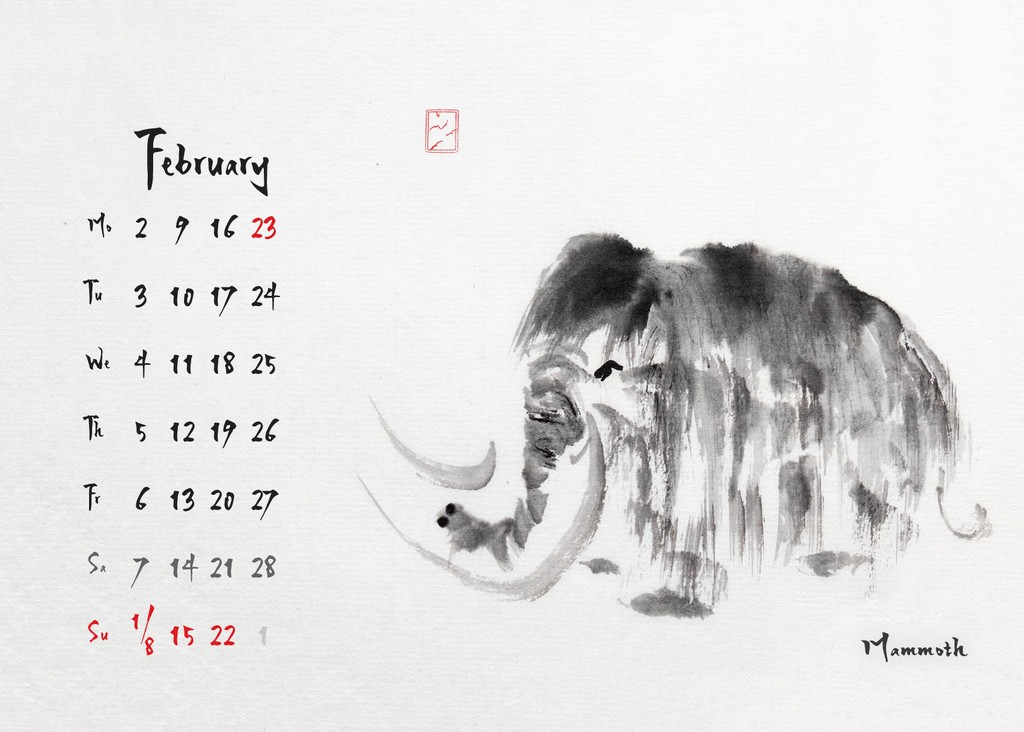 February
Mo 2 9 16 23
Tu 3 10 17 24
We 4 11 18 25
Th 5 12 19 26
Fr 6 13 20 27
Sa 7 14 21 28
Su 1/8 15 22 1
Mammoth